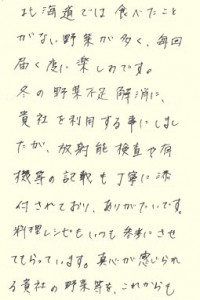 北海道では食べたこと
がない野菜が多く、毎回
届く度に楽しみです。
冬の野菜不足解消に、
貴社を利用する事にしまし
たが、放射能検査や有
機等の記載も丁寧に添
付されており、ありがたいです。
料理レシピもいつも参考にさせ
てもらっています。真心が感じられ
る貴社の野菜等を、これからも